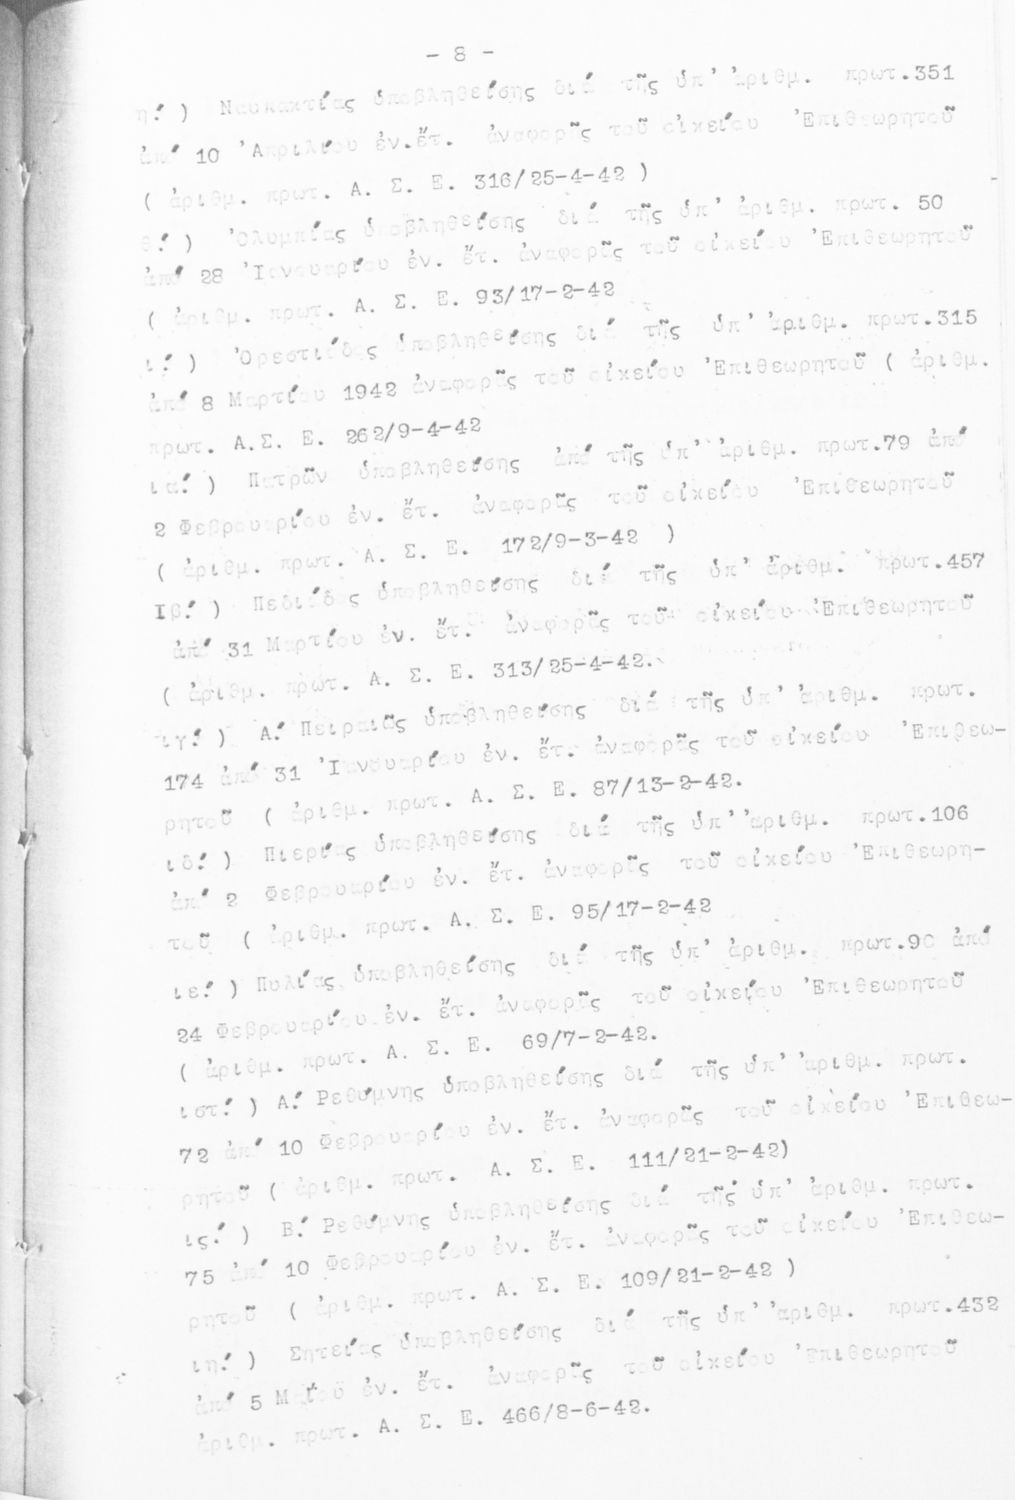 - 8 -
η!) Ναυπακτίας ὑποβληθείσης διά τῆς ὑπ' ἀριθμ. πρωτ.351
ἀπό 10 'Απριλίου ἐν.ἔτ. ἀναφορᾶς τοῦ οἰκείου 'Επιθεωρητοῦ
( ἀριθμ. πρωτ. Α. Σ. Ε. 316/25-4-42 )
θ!) 'Ολυμπίας ὑποβληθείσης διά τῆς ὑπ' ἀριθμ. πρωτ. 50
ἀπό 28 'Ιανουαρίου ἐν. ἔτ. ἀναφορᾶς τοῦ οἰκείου 'Επιθεωρητοῦ
( ἀριθμ. πρωτ. Α. Σ. Ε. 93/17-2-42
ι!) 'Ορεστιάδος ὑποβληθείσης διά τῆς ὑπ' ἀριθμ. πρωτ.315
ἀπό 8 Μαρτίου 1942 ἀναφορᾶς τοῦ οἰκείου 'Επιθεωρητοῦ ( ἀριθμ.
πρωτ. Α.Σ. Ε. 262/9-4-42
ια!) Πατρῶν ὑποβληθείσης ἀπό τῆς ὑπ' ἀριθμ. πρωτ.79 ἀπό
2 Φεβρουαρίου ἐν. ἔτ. ἀναφορᾶς τοῦ οἰκείου 'Επιθεωρητοῦ
( ἀριθμ. πρωτ. Α. Σ. Ε. 172/9-3-42 )
Ιβ!) Πεδιάδος ὑποβληθείσης διά τῆς ὑπ' ἀριθμ. πρωτ.457
ἀπό 31 Μαρτίου ἐν. ἔτ. ἀναφορᾶς τοῦ οἰκείου 'Επιθεωρητοῦ
( ἀριθμ. πρωτ. Α. Σ. Ε. 313/25-4-42.
ιγ!) Α! Πειραιᾶς ὑποβληθείσης διά τῆς ὑπ' ἀριθμ. πρωτ.
174 ἀπό 31 'Ιανουαρίου ἐν. ἔτ. ἀναφορᾶς τοῦ οἰκείου 'Επιθεω-
ρητοῦ ( ἀριθμ. πρωτ. Α. Σ. Ε. 87/13-2-42.
ιδ!) Πιερίας ὑποβληθείσης διά τῆς ὑπ' ἀριθμ. πρωτ.106
ἀπό 2 Φεβρουαρίου ἐν. ἔτ. ἀναφορᾶς τοῦ οἰκείου 'Επιθεωρη-
τοῦ ( ἀριθμ. πρωτ. Α. Σ. Ε. 95/17-2-42
ιε!) Πυλίας ὑποβληθείσης διά τῆς ὑπ' ἀριθμ. πρωτ.90 ἀπό
24 Φεβρουαρίου ἐν. ἔτ. ἀναφορᾶς τοῦ οἰκείου 'Επιθεωρητοῦ
( ἀριθμ. πρωτ. Α. Σ. Ε. 69/7-2-42.
ιστ!) Α! Ρεθύμνης ὑποβληθείσης διά τῆς ὑπ' ἀριθμ. πρωτ.
72 ἀπό 10 Φεβρουαρίου ἐν. ἔτ. ἀναφορᾶς τοῦ οἰκείου 'Επιθεω-
ρητοῦ ( ἀριθμ. πρωτ. Α. Σ. Ε. 111/21-2-42)
ις!) Β! Ρεθύμνης ὑποβληθείσης διά τῆς ὑπ' ἀριθμ. πρωτ.
75 ἀπό 10 Φεβρουαρίου ἐν. ἔτ. ἀναφορᾶς τοῦ οἰκείου 'Επιθεω-
ρητοῦ ( ἀριθμ. πρωτ. Α. Σ. Ε. 109/21-2-42 )
ιη!) Σητείας ὑποβληθείσης διά τῆς ὑπ' ἀριθμ. πρωτ.432
ἀπό 5 Μαΐου ἐν. ἔτ. ἀναφορᾶς τοῦ οἰκείου 'Επιθεωρητοῦ
ἀριθμ. πρωτ. Α. Σ. Ε. 466/8-6-42.